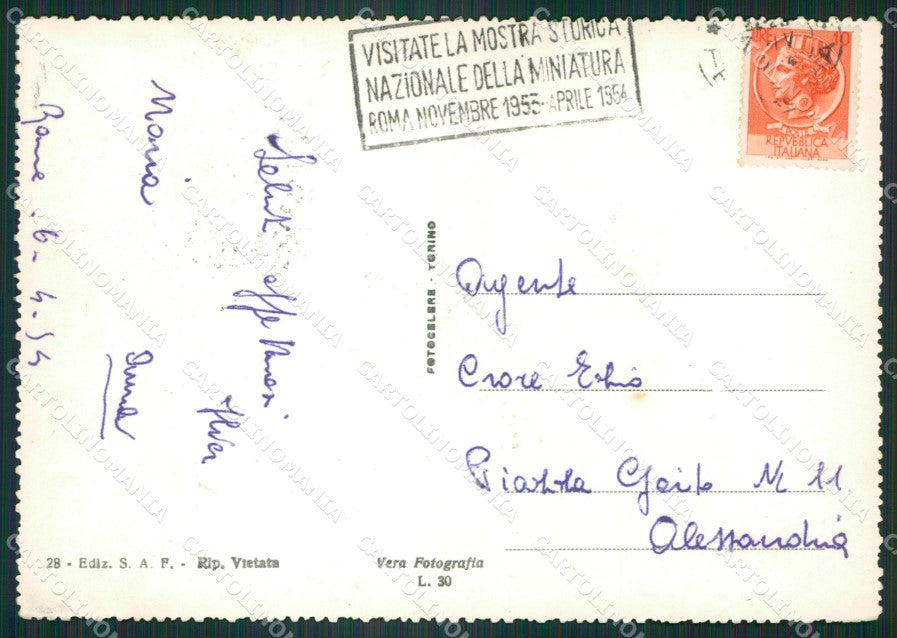 VISITATE LA MOSTRA STORICA
NAZIONALE DELLA MINIATURA
ROMA NOVEMBRE 1953-APRILE 1954
LIRE 10
POSTE
REPVBBLICA
ITALIANA
Roma 6-4-54
Maria
Saluti affettuosi
Anna
FOTOCELERE - TORINO
Agente
Piazza M 11
Alessandria
28 - Ediz. S. A. F. - Rip. Vietata
Vera Fotografia
L. 30
CARTOLINOMANIA